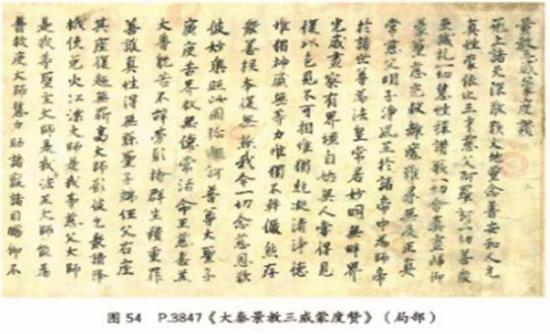 景教三威蒙度讚
无上諸天深敬歎大地重念普安和人元
真性蒙依止三才慈父阿羅訶一切善眾
至誠礼一切慧性稱讚歌一切含真盡歸仰
蒙聖慈光救離魔難尋無及正真
常慈父明子淨風王於諸帝中為師帝
於諸世尊為法皇常居妙明無畔界
光威盡察有界疆自始無人嘗得見
復以色見不可相惟獨絕凝清淨德
惟獨神威無等力惟獨不轉儼然存
眾善根本復無極我今一切念慈恩歎
彼妙樂照此國彌施訶普尊大聖子
廣度苦界救無億常活命王慈喜羔
大普耽苦不辭勞願捨群生積重罪
善護真性得無繇聖子端任父右座
其座復超無鼎高大師願彼乞眾請降
栰使免火江漂大師是我等慈父大師
是我等聖主大師是我法王大師能為
普救度大師慧力助諸羸諸目瞻仰不
图54 P.3847《大秦景教三威蒙度赞》（局部）